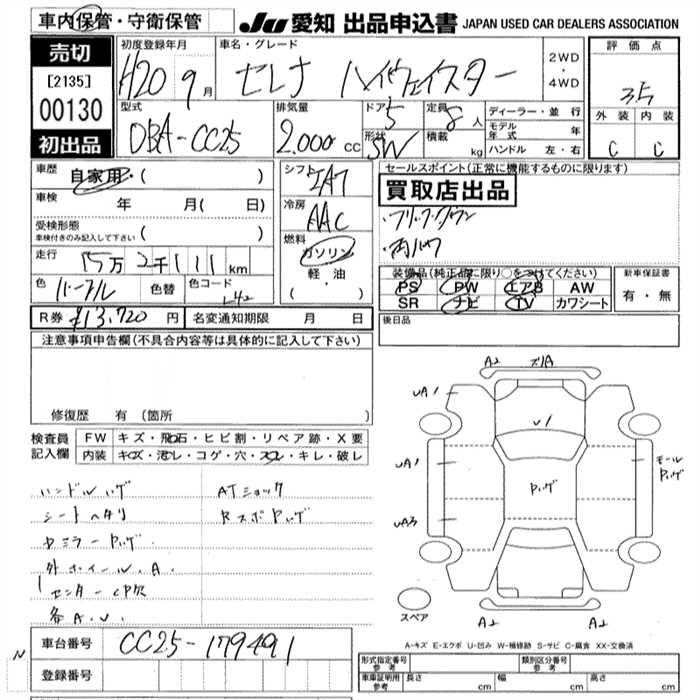 車内保管・守衛保管
JU 愛知 出品申込書 JAPAN USED CAR DEALERS ASSOCIATION
売切
[2135]
00130
初出品
初度登録年月
H20 9月
車名・グレード
セレナ ハイウェイスター
2WD
・
4WD
評価点
3.5
外装 内装
C C
型式
DBA-CC25
排気量
2,000 CC
ドア
5
形状
SW
定員
8人
積載
kg
ディーラー・並行
モデル年式 年
ハンドル 左・右
車歴
自家用・( )
車検 年 月( 日)
受検形態
車検付きのみ記入して下さい ( )
走行 km
色 パープル 色替 色コード L42
シフト
IAT
冷房
AAC
燃料
ガソリン
軽・油
( ・ )
セールスポイント(正常に機能するものに限ります)
買取店出品
・フリップダウン
装備品(純正品に限り○をつけてください)
PS PW エアB AW
SR ナビ TV カワシート
新車保証書
有・無
R券 ¥13,720 円
名変通知期限 月 日
後日品
注意事項申告欄(不具合内容等は具体的に記入して下さい)
修復歴 有 (箇所 )
検査員記入欄
FW キズ・飛石・ヒビ割・リペア跡・X要
内装 キズ・汚レ・コゲ・穴・スレ・キレ・破レ
ハンドルハゲ
シートヘタリ
外ホイール.A.
センターCP欠
各A.U.
ATショック
A2
UA1
U1
UA1
モール
Pハゲ
Pハゲ
UA3
A2 A2
スペア
A-キズ E-エクボ U-凹み W-補修跡 S-サビ C-腐食 XX-交換済
N
車台番号 CC25-179491
登録番号
形式指定番号参考
類別区分番号参考
車庫証明用参考 長さ cm 幅 cm 高さ cm